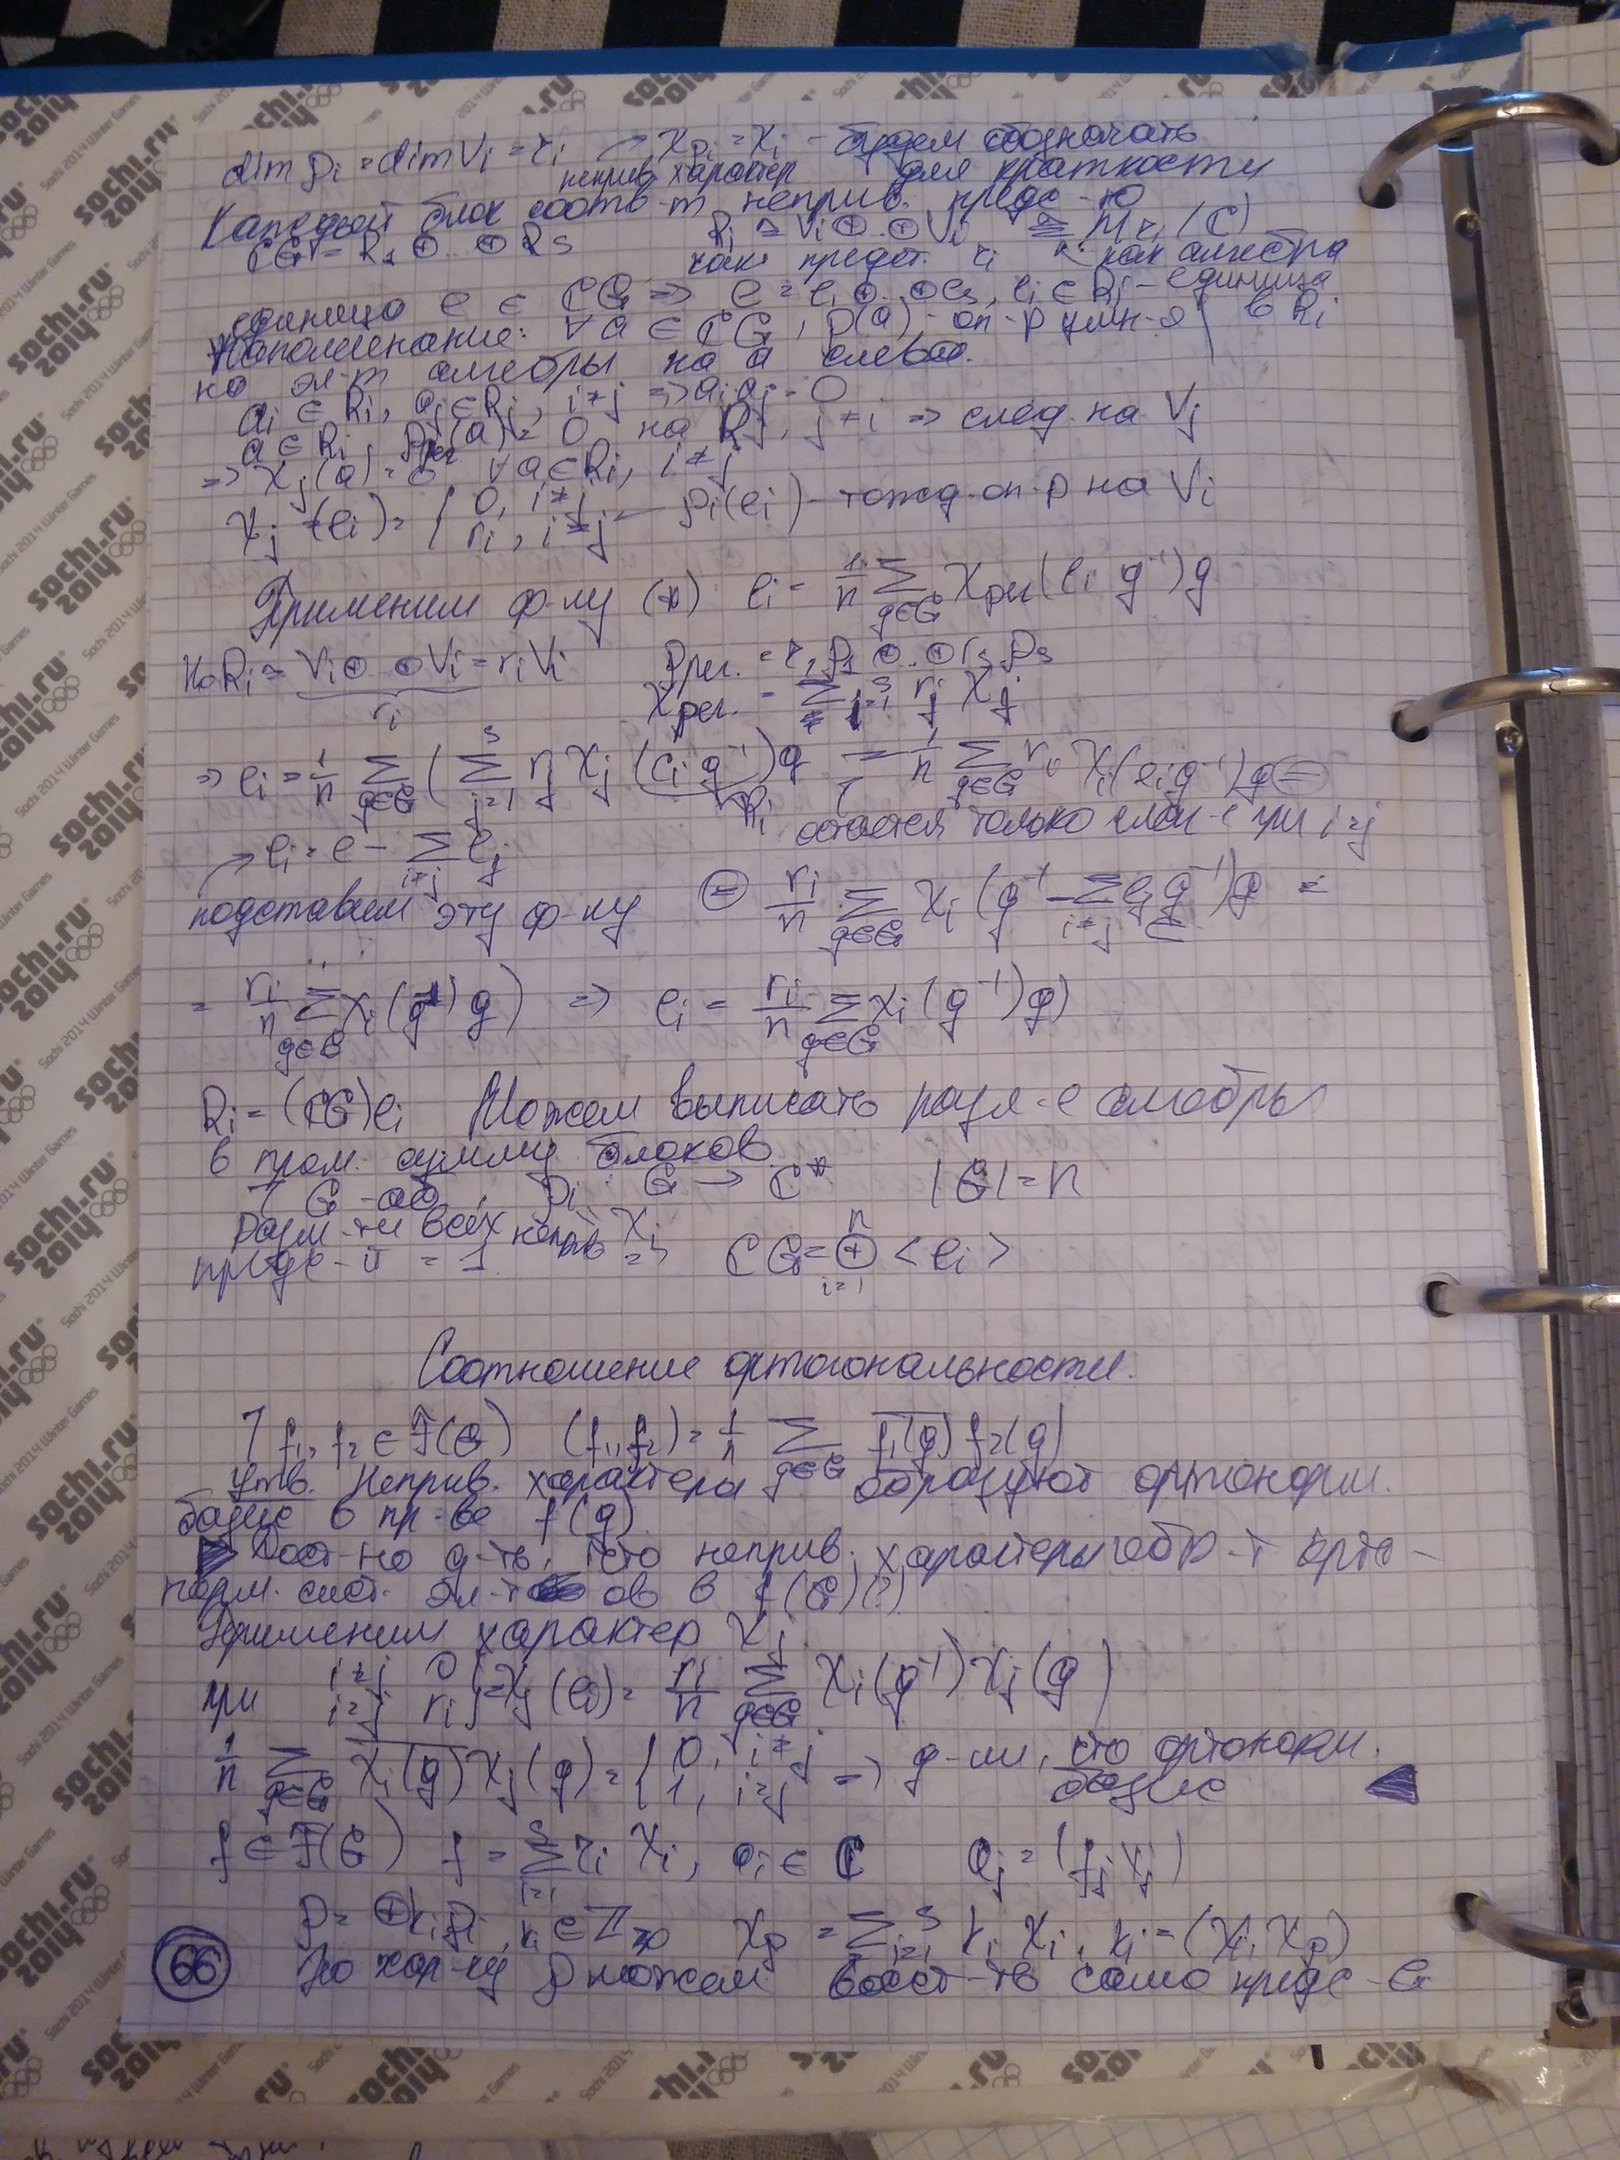 dim ρi = dim Vi = ri → χρi = χi – будем обозначать
неприв. характер для краткости
Каждый блок соотв-т неприв. предс-ю
ℂG = R1 ⊕ .. ⊕ Rs Ri ≅ Vi ⊕ .. ⊕ Vi ≅ Mri (ℂ)
как предст. ri как алгебра
единица e ∈ ℂG => e = e1 ⊕ .. ⊕ es, ei ∈ Ri – единица
Напоминание: ∀a ∈ ℂG, ρ(a) – оп-р умн-я в Ri
на эл-т алгебры на a слева.
ai ∈ Ri, aj ∈ Rj, i≠j => ai aj = 0
a ∈ Ri, ρрег(a) = 0 на Rj, j≠i => след. на Vj
=> χj(a) = 0 ∀a ∈ Ri, i≠j
χj(ei) = { 0, i≠j
ri, i=j ← ρi(ei) – тожд. оп-р на Vi
Применим ф-лу (*) ei = 1/n Σ g∈G χрег(ei g⁻¹)g
Но Ri ≅ Vi ⊕ .. ⊕ Vi = riVi ρрег. = r1ρ1 ⊕ .. ⊕ rsρs
ri χрег. = Σ j=1 s rj χj
=> ei = 1/n Σ g∈G ( Σ j=1 s rj χj (ei g⁻¹)g = 1/n Σ g∈G ri χi(ei g⁻¹)g ⊜
Ri остаётся только слаг-е при i=j
→ ei = e – Σ i≠j ej
подставим эту ф-лу ⊜ ri/n Σ g∈G χi (g⁻¹ – Σ i≠j ej g⁻¹)g =
= ri/n Σ g∈G χi (g⁻¹)g) => ei = ri/n Σ g∈G χi (g⁻¹)g)
Ri = (ℂG)ei Можем выписать разл-е алгебры
в прям. сумму блоков
] G – аб., ρi: G → ℂ* |G| = n
разм-ти всех неприв χi
предс-й = 1 => ℂG = ⊕ i=1 n <ei>
Соотношение ортогональности.
] f1, f2 ∈ F(G) (f1, f2) = 1/n Σ g∈G f̅1̅(̅g̅)̅ f2(g)
Утв. Неприв. характеры образуют ортонорм.
базис в пр-ве f(g)
▶ Дост-но д-ть, что неприв. характеры обр-т орто-
норм. сист. эл-тов в f(G)(?)
Применим характер χj
при i≠j 0
i=j ri } = χj(ei) = ri/n Σ g∈G χi(g⁻¹)χj(g)
1/n Σ g∈G χ̅i̅(̅g̅)̅ χj(g) = { 0, i≠j
1, i=j => д-ли, что ортонорм.
базис ◀
f ∈ F(G) f = Σ i=1 s ri χi, ai ∈ ℂ aj = (f, χj)
ρ = ⊕kiρi, ki ∈ ℤ≥0 χρ = Σ i=1 s ki χi, ki = (χi, χρ)
66 По хар-ру ρ можем восст-ть само предс-е
sochi.ru
2014
Sochi 2014 Winter Games